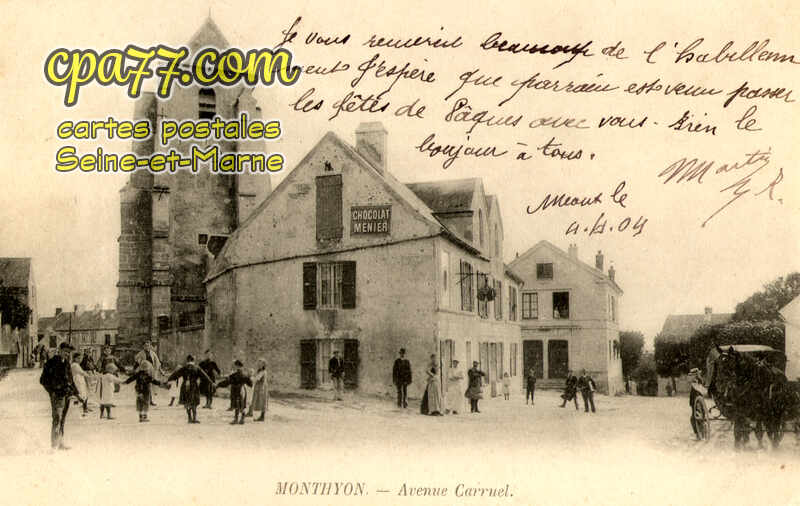 Je vous remercie beaucoup de l'habillem
ent J'espère que parrain est venu passer
les fêtes de Pâques avec vous. Bien le
bonjour à tous.
Martin
Meaux le
4.4.04
cpa77.com
cartes postales
Seine-et-Marne
CHOCOLAT
MENIER
MONTHYON. — Avenue Carruel.